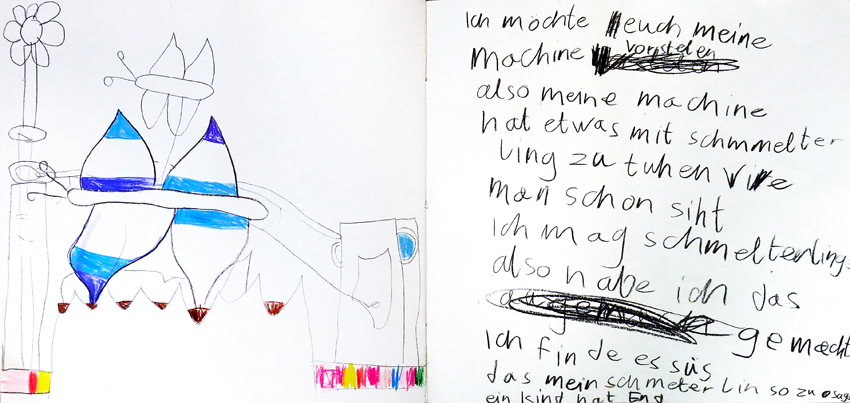 Ich möchte euch meine
machine vorstelen
also meine machine
hat etwas mit schmmelter
ling zu tuhen vire
man schon siht
ich mag schmelterlings
also habe ich das
gemacht
ich finde es süs
das mein schmeterlin so zu sage
ein kind hat End